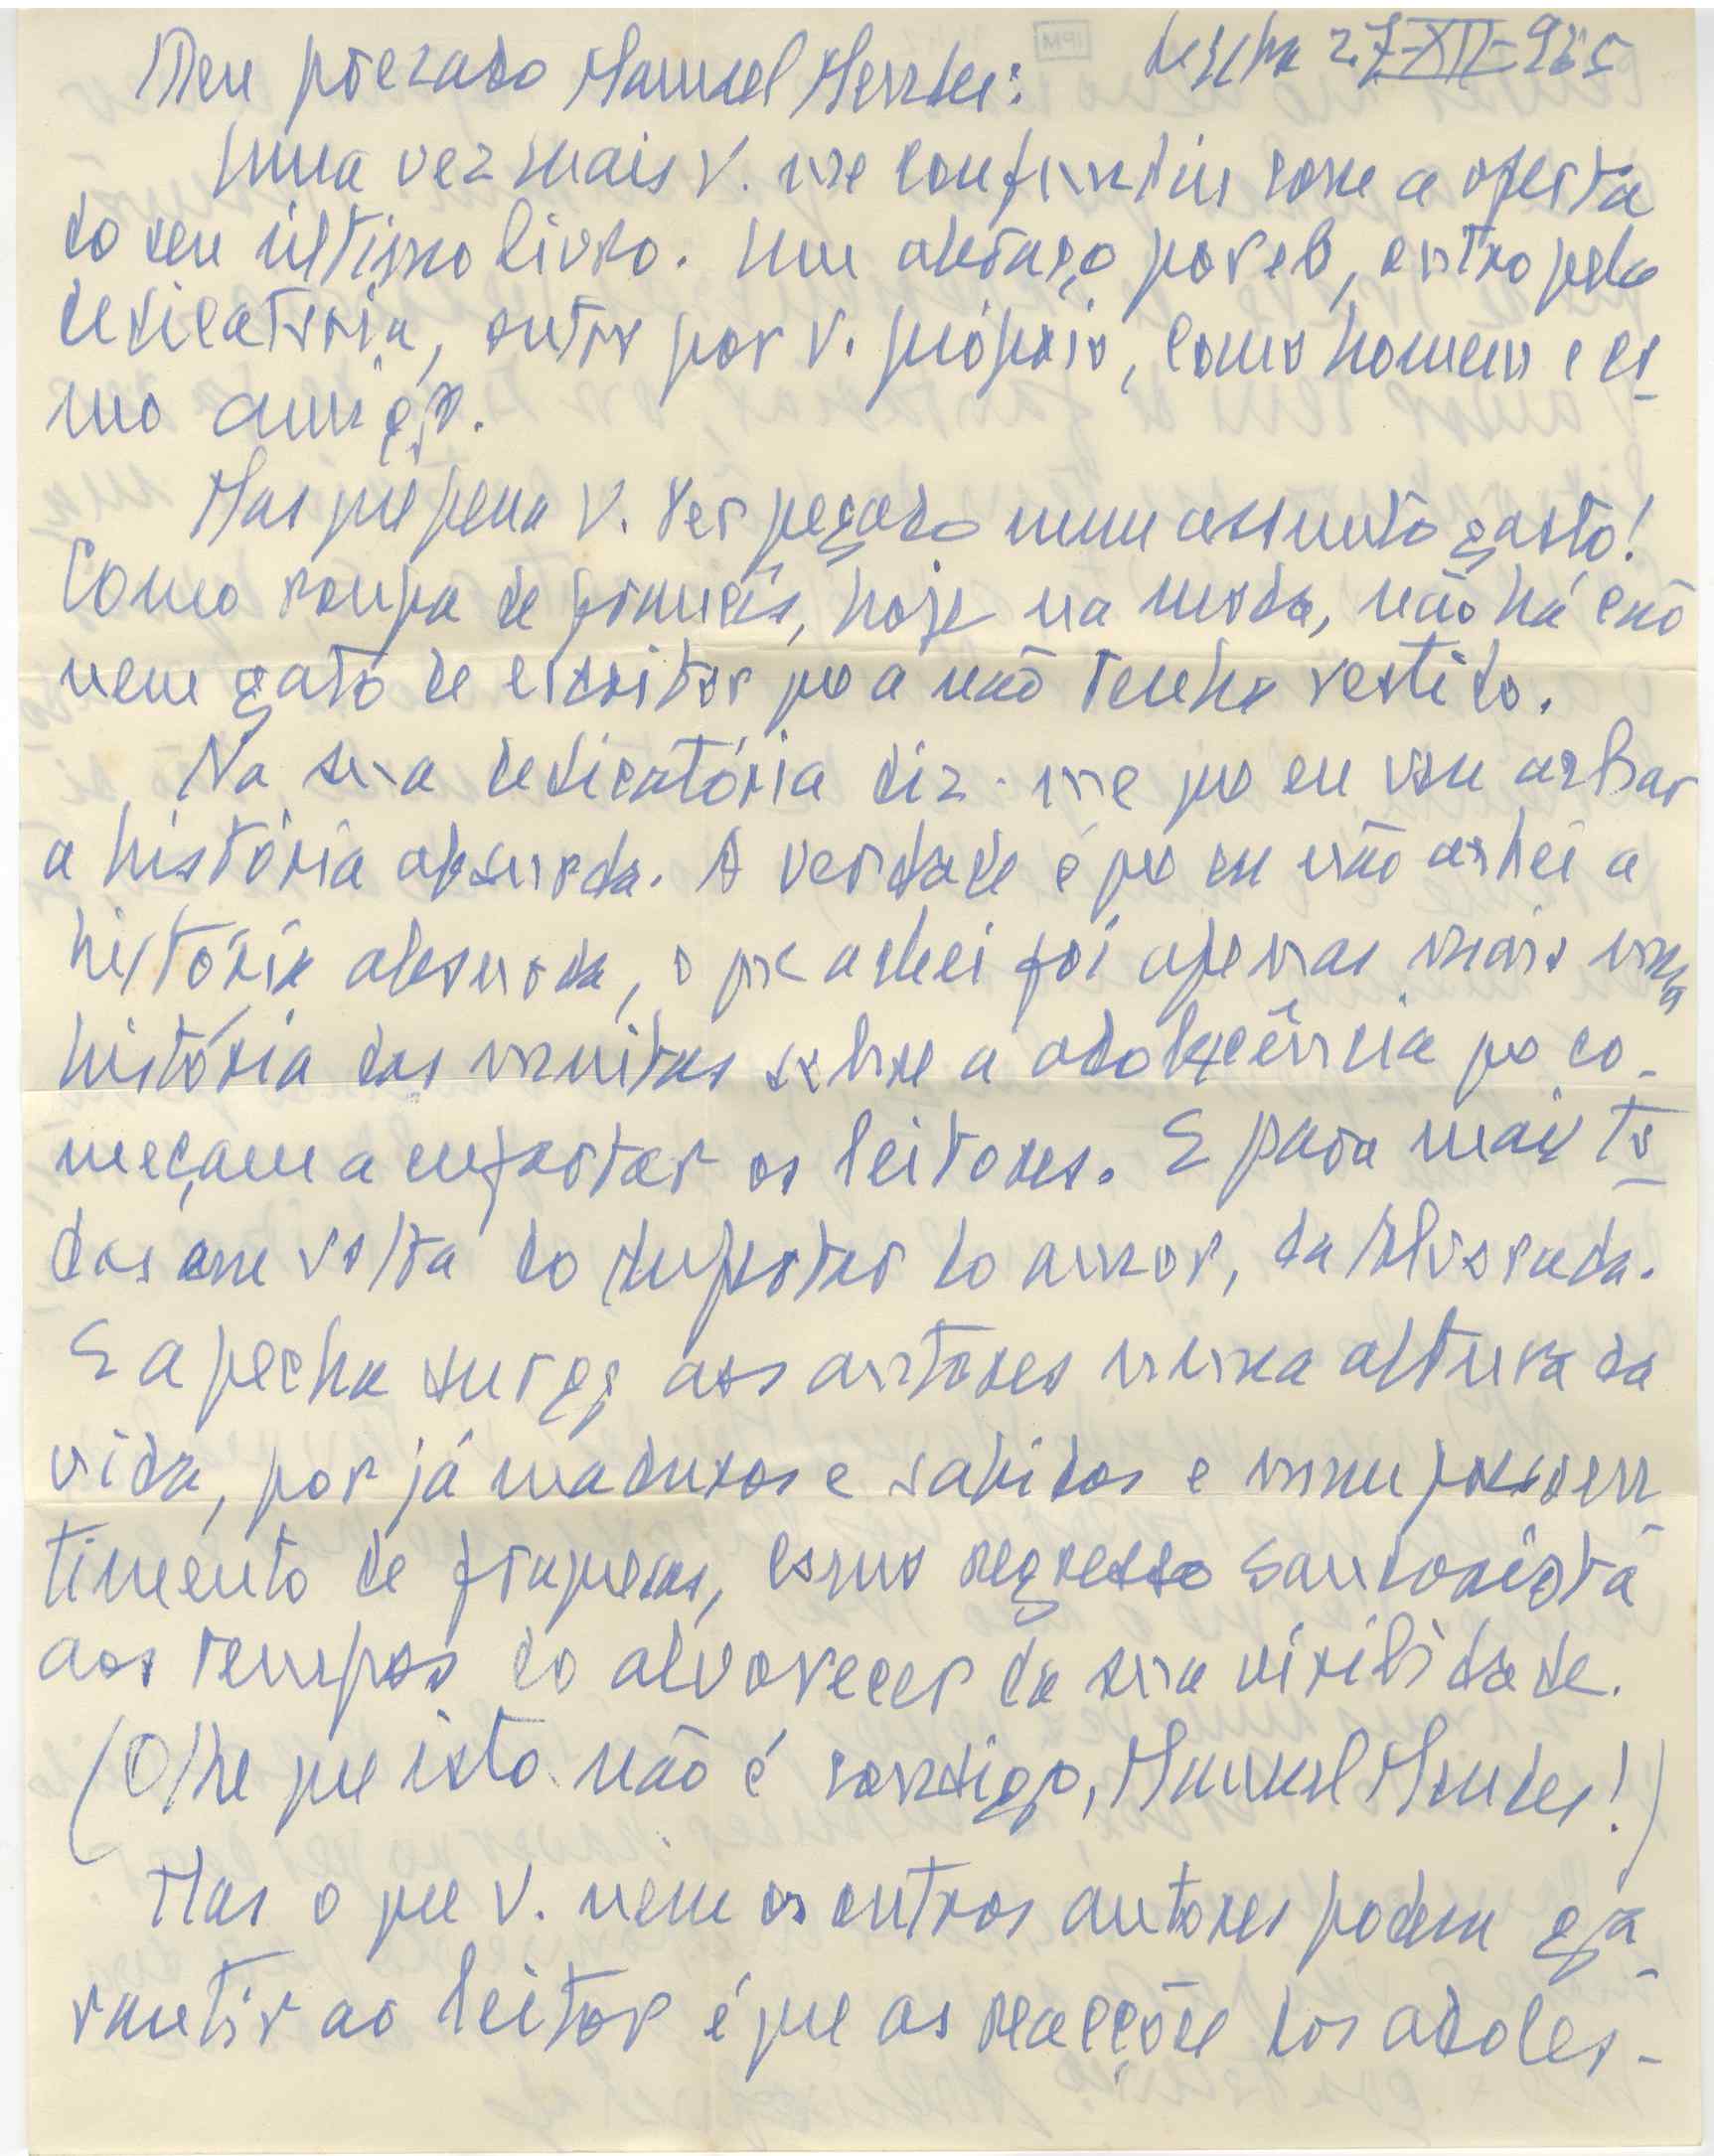 Meu prezado Manuel Mendes: 27-XII-965
Uma vez mais V. me confundiu com a oferta
do seu último livro. Um abraço por ele, outro pela
dedicatória, outro por V. próprio, como homem e co-
mo amigo.
Mas que pena V. ter pegado num assunto gasto!
Como roupa de francês, hoje na moda, não há cão
nem gato de escritor que a não tenha vestido.
Na sua dedicatória diz-me que eu vou achar
a história absurda. A verdade é que eu não achei a
história absurda, o que achei foi apenas mais uma
história das muitas sobre a adolescência que co-
meçam a enfartar os leitores. E para mais to-
das em volta do despertar do amor, da alvorada.
E a pecha surge aos autores numa altura da
vida, por já maduros e sabidos e num pressen-
timento de fraquezas, como regresso saudosista
aos tempos do alvorecer da sua virilidade.
(Olhe que isto não é consigo, Manuel Mendes!)
Mas o que V. nem os outros autores podem ga-
rantir ao leitor é que as reacções dos adoles-